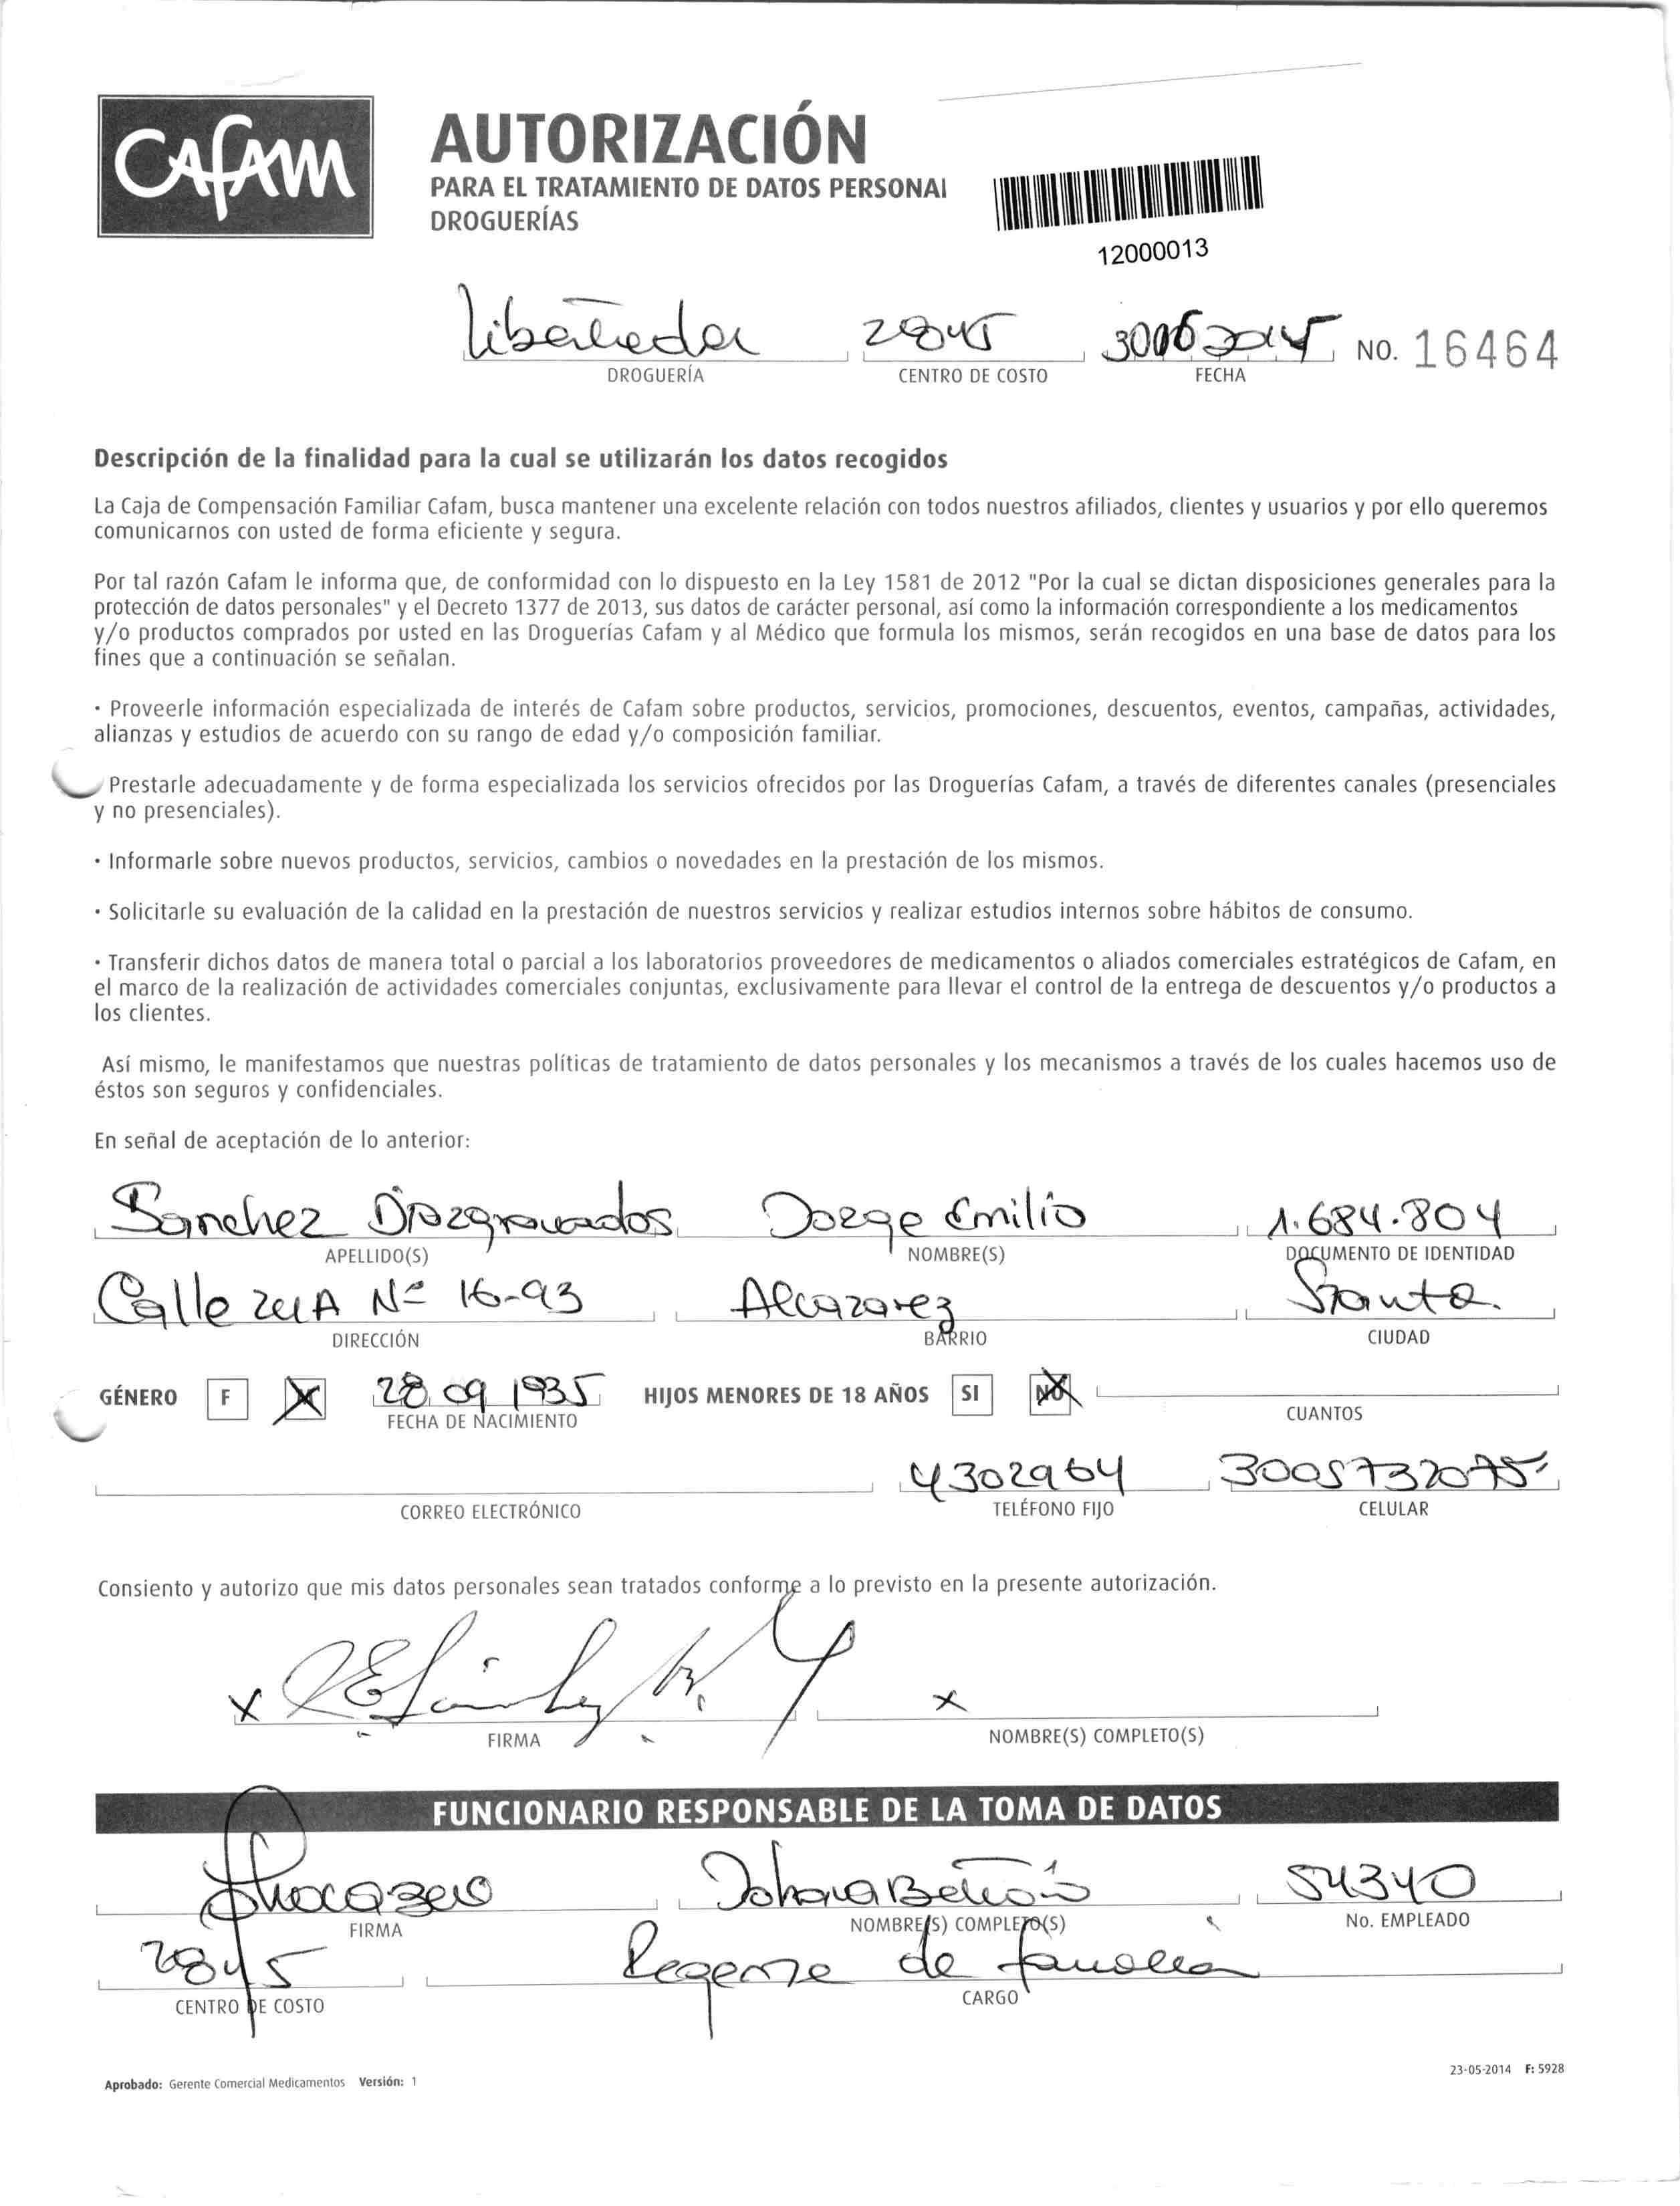 CAFAM
AUTORIZACIÓN
PARA EL TRATAMIENTO DE DATOS PERSONAL
DROGUERÍAS
12000013
2845 30062015 NO. 16464
DROGUERÍA CENTRO DE COSTO FECHA
Descripción de la finalidad para la cual se utilizarán los datos recogidos
La Caja de Compensación Familiar Cafam, busca mantener una excelente relación con todos nuestros afiliados, clientes y usuarios y por ello queremos
comunicarnos con usted de forma eficiente y segura.
Por tal razón Cafam le informa que, de conformidad con lo dispuesto en la Ley 1581 de 2012 "Por la cual se dictan disposiciones generales para la
protección de datos personales" y el Decreto 1377 de 2013, sus datos de carácter personal, así como la información correspondiente a los medicamentos
y/o productos comprados por usted en las Droguerías Cafam y al Médico que formula los mismos, serán recogidos en una base de datos para los
fines que a continuación se señalan.
· Proveerle información especializada de interés de Cafam sobre productos, servicios, promociones, descuentos, eventos, campañas, actividades,
alianzas y estudios de acuerdo con su rango de edad y/o composición familiar.
Prestarle adecuadamente y de forma especializada los servicios ofrecidos por las Droguerías Cafam, a través de diferentes canales (presenciales
y no presenciales).
· Informarle sobre nuevos productos, servicios, cambios o novedades en la prestación de los mismos.
· Solicitarle su evaluación de la calidad en la prestación de nuestros servicios y realizar estudios internos sobre hábitos de consumo.
· Transferir dichos datos de manera total o parcial a los laboratorios proveedores de medicamentos o aliados comerciales estratégicos de Cafam, en
el marco de la realización de actividades comerciales conjuntas, exclusivamente para llevar el control de la entrega de descuentos y/o productos a
los clientes.
Así mismo, le manifestamos que nuestras políticas de tratamiento de datos personales y los mecanismos a través de los cuales hacemos uso de
éstos son seguros y confidenciales.
En señal de aceptación de lo anterior:
Sanchez Diazgranados Jorge Emilio 1.684.804
APELLIDO(S) NOMBRE(S) DOCUMENTO DE IDENTIDAD
Calle 24A Nº 16-93 Alcazarez Stanta.
DIRECCIÓN BARRIO CIUDAD
GÉNERO F M 28 09 1935 HIJOS MENORES DE 18 AÑOS SI NO
FECHA DE NACIMIENTO CUANTOS
4302964 3005732075
CORREO ELECTRÓNICO TELÉFONO FIJO CELULAR
Consiento y autorizo que mis datos personales sean tratados conforme a lo previsto en la presente autorización.
x x
FIRMA NOMBRE(S) COMPLETO(S)
FUNCIONARIO RESPONSABLE DE LA TOMA DE DATOS
Johana 54340
FIRMA NOMBRE(S) COMPLETO(S) No. EMPLEADO
2845 Regente de
CENTRO DE COSTO CARGO
Aprobado: Gerente Comercial Medicamentos Versión: 1
23-05-2014 F: 5928